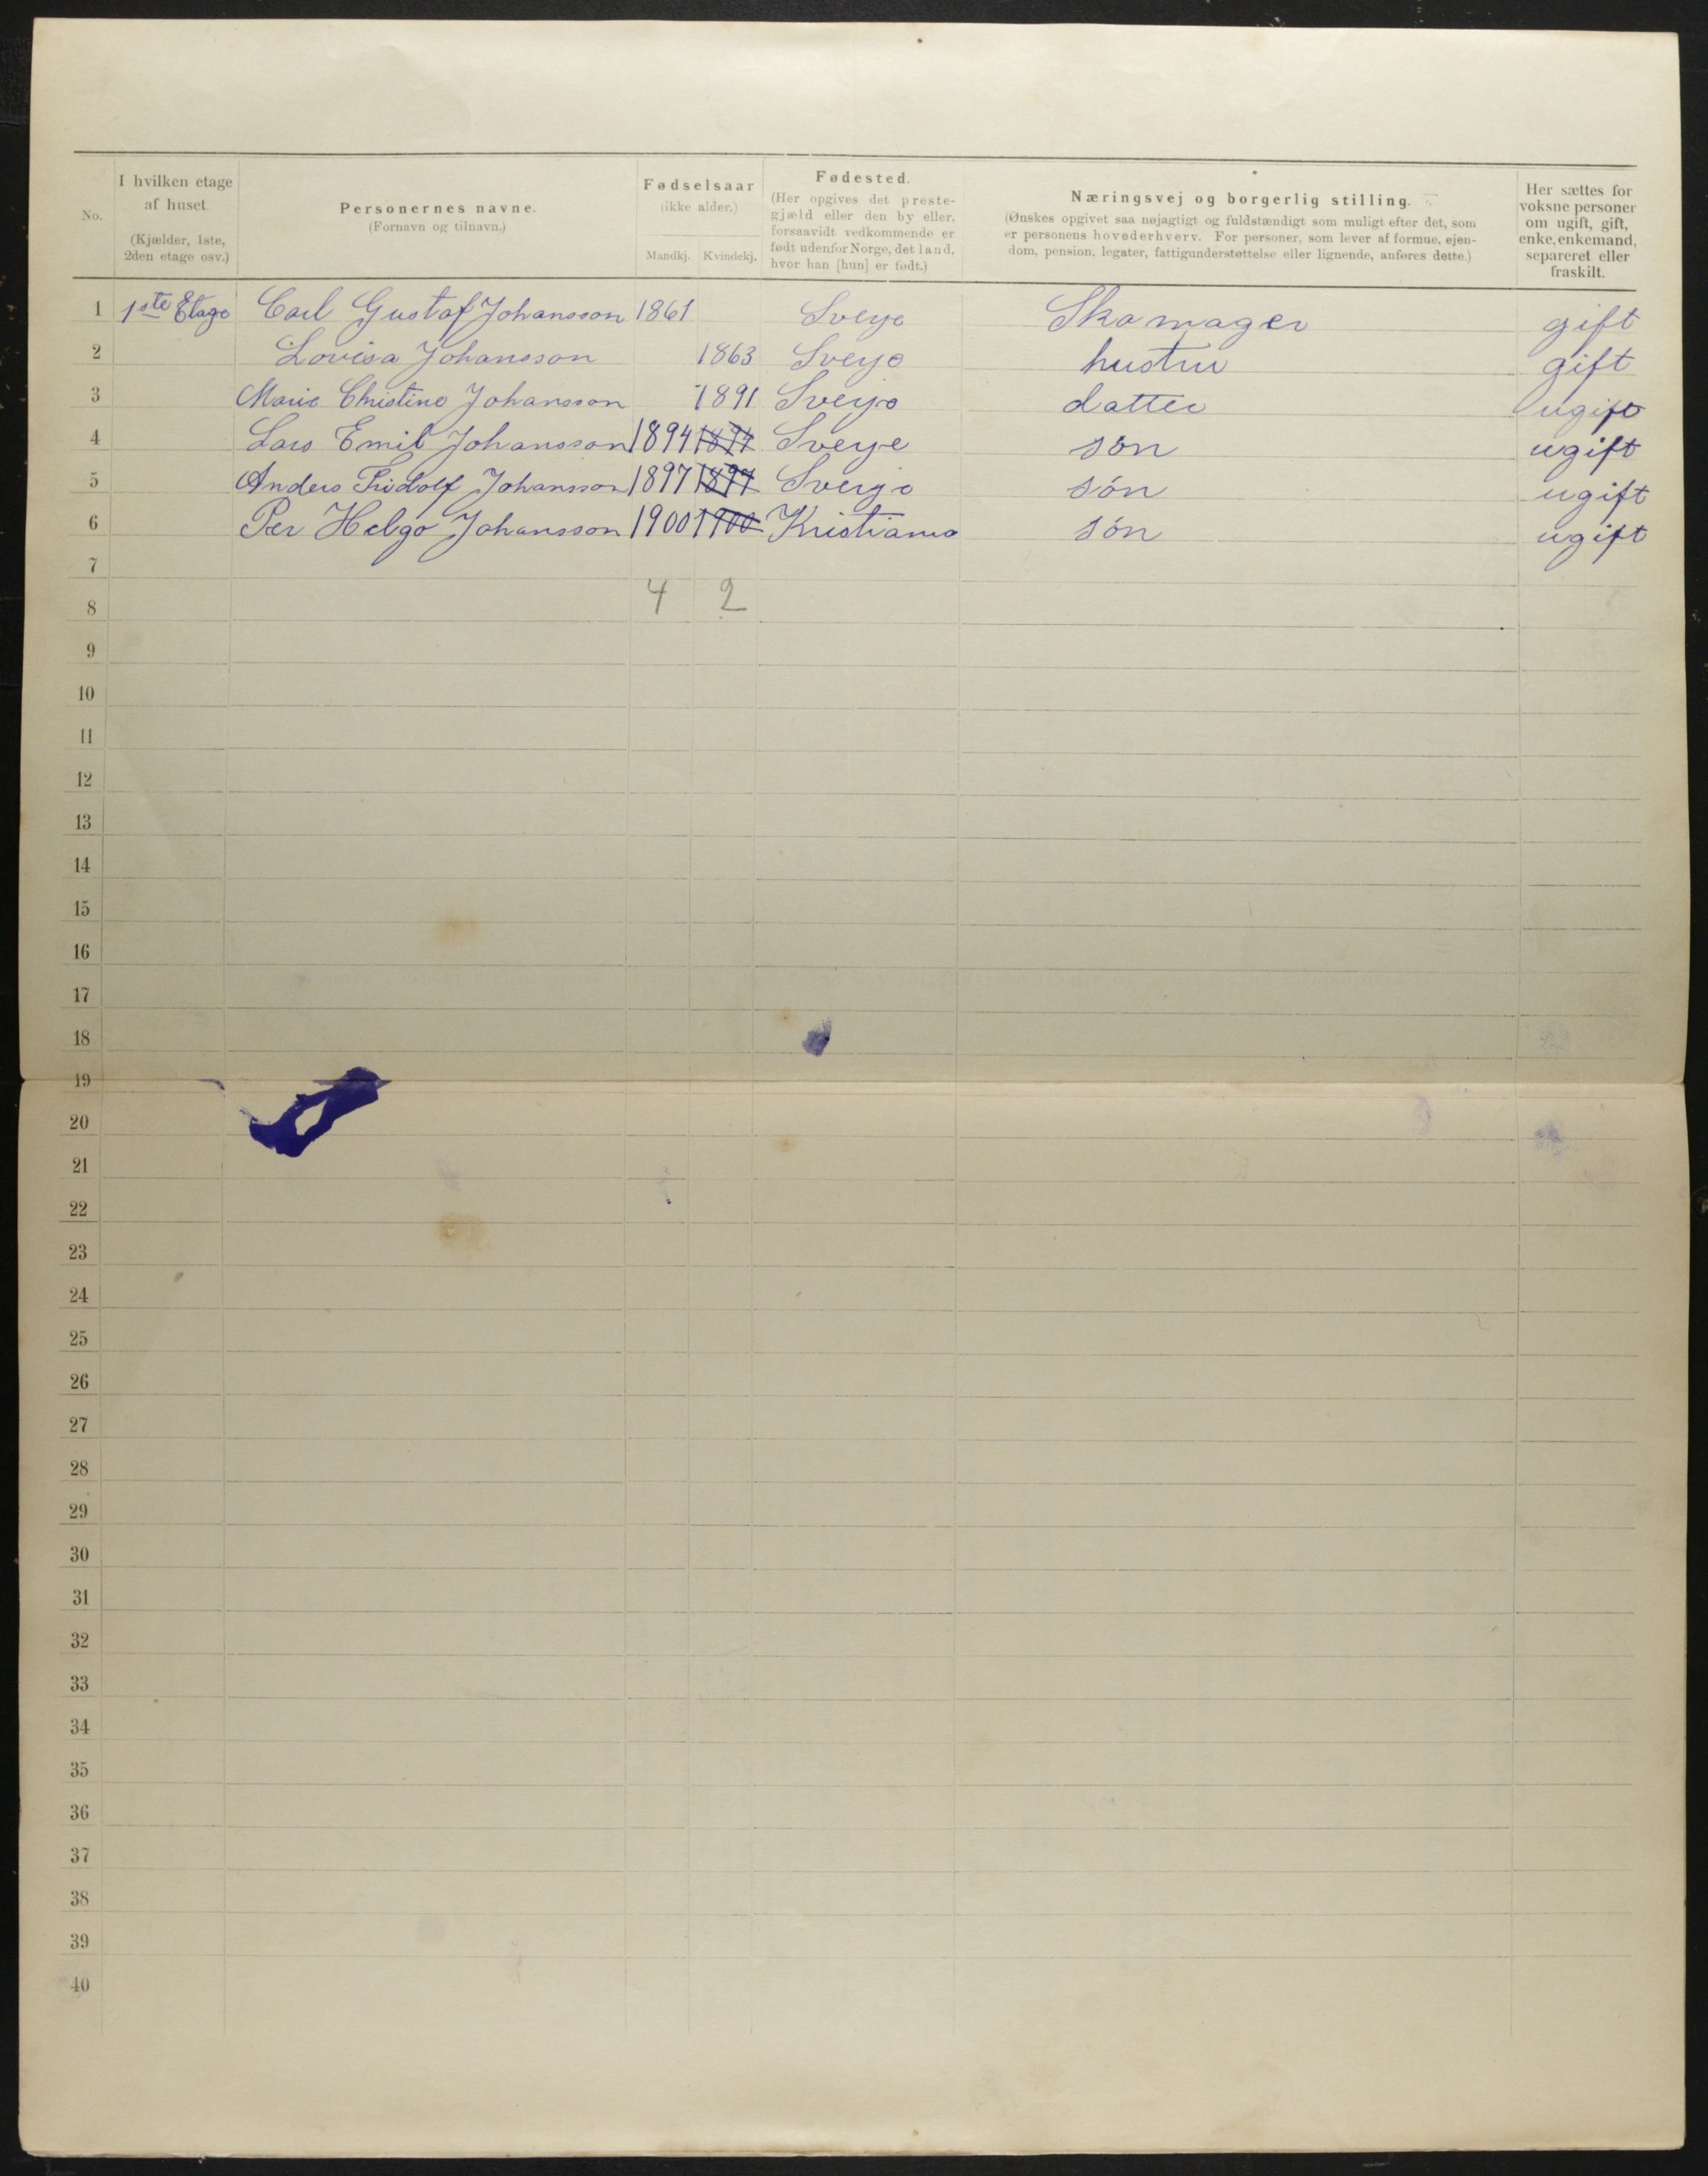 No.
I hvilken etage
af huset.
(Kjælder, 1ste,
2den etage osv.)
Personernes navne.
(Fornavn og tilnavn.)
Fødselsaar
(ikke alder.)
Mandkj. Kvindekj.
Fødested.
(Her opgives det preste-
gjæld eller den by eller,
forsaavidt vedkommende er
født udenfor Norge, det land,
hvor han [hun] er født.)
Næringsvej og borgerlig stilling.
(Ønskes opgivet saa nøjagtigt og fuldstændigt som muligt efter det, som
er personens hovederhverv. For personer, som lever af formue, ejen-
dom, pension, legater, fattigunderstøttelse eller lignende, anføres dette.)
Her sættes for
voksne personer
om ugift, gift,
enke, enkemand,
separeret eller
fraskilt.
1 1ste Etage Carl Gustaf Johansson 1861 Sverje Skomager gift
2 Lovisa Johansson 1863 Sverje hustru gift
3 Marie Christine Johansson 1891 Sverje datter ugift
4 Lars Emil Johansson 1894 1894 Sverje sön ugift
5 Anders Fridolf Johansson 1897 1897 Sverje són ugift
6 Per Helge Johansson 1900 1900 Kristiania són ugift
7
8 4 2
9
10
11
12
13
14
15
16
17
18
19
20
21
22
23
24
25
26
27
28
29
30
31
32
33
34
35
36
37
38
39
40